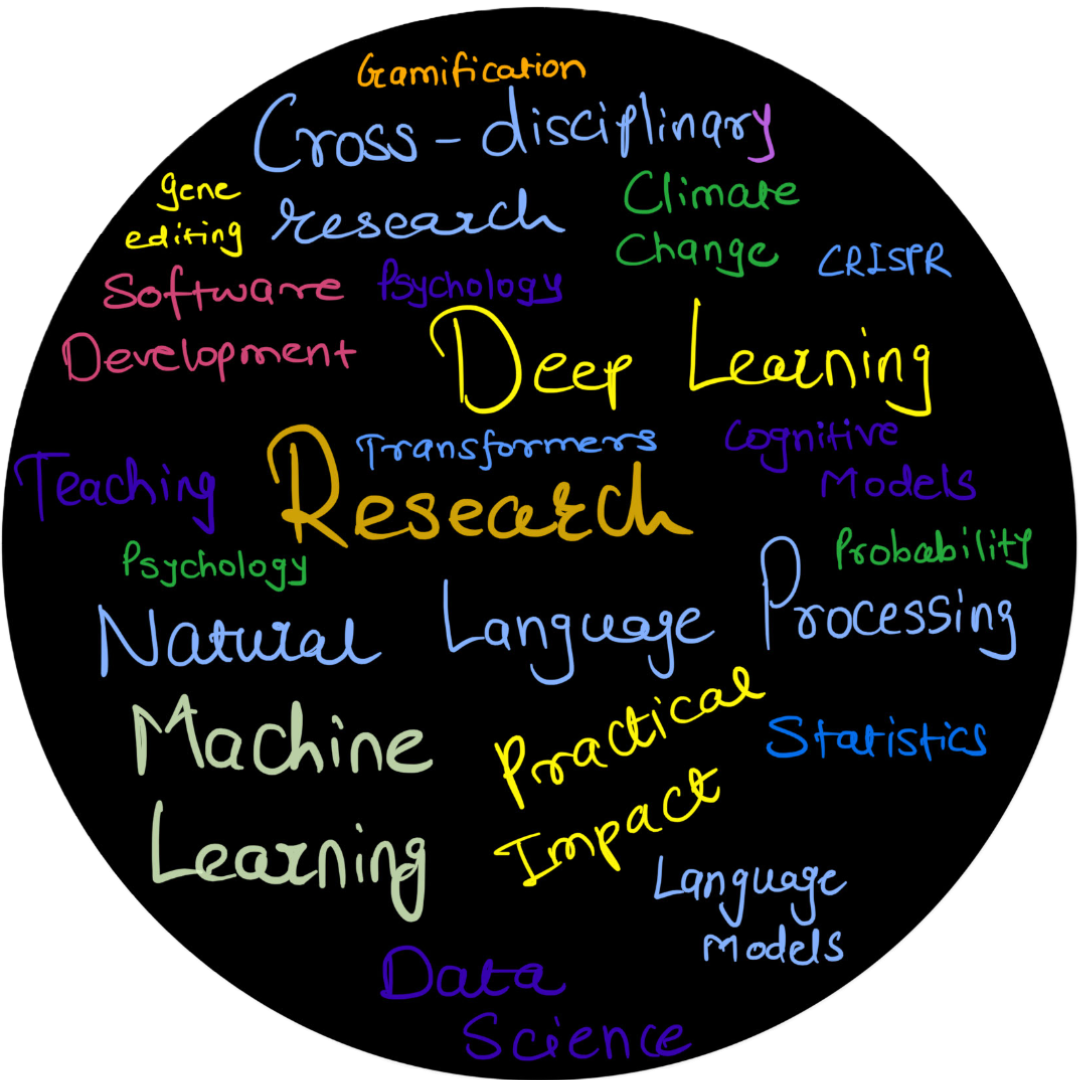 Gamification
Cross - disciplinary
research
gene
editing
Climate
Change
CRISPR
Software
Development
Psychology
Deep Learning
Transformers
Research
Cognitive
Models
Teaching
Psychology
Probability
Natural Language Processing
Machine
Learning
Practical
Impact
Statistics
Language
Models
Data
Science